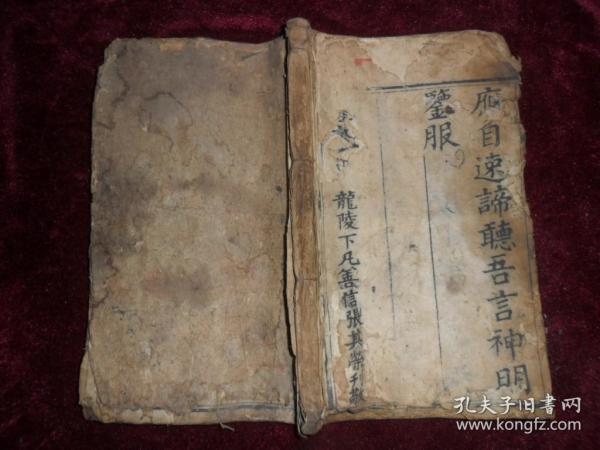 應自速諦聽吾言神明
鑒服
龍陵下凡善信張其榮刊
孔夫子旧书网
www.kongfz.com